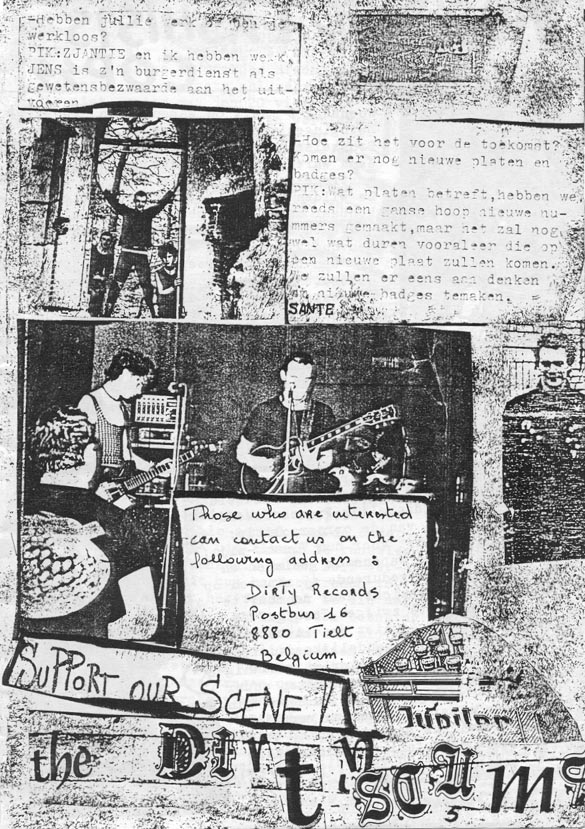 -Hebben jullie werk of
werkloos?
PIK:ZJANTIE en ik hebben werk,
JENS is z'n burgerdienst als
gewetensbezwaarde aan het uit-
voeren
-Hoe zit het voor de toekomst?
Komen er nog nieuwe platen en
badges?
PIK:Wat platen betreft,hebben we
reeds een ganse hoop nieuwe nu-
mmers gemaakt,maar het zal nog
wel wat duren vooraleer die op
een nieuwe plaat zullen komen.
We zullen er eens aan denken
nieuwe badges temaken.
SANTE
Those who are interested
can contact us on the
following address :
Dirty Records
Postbus 16
8880 Tielt
Belgium.
SUPPORT OUR SCENE!
Jupiler
the Dirty
scums
5